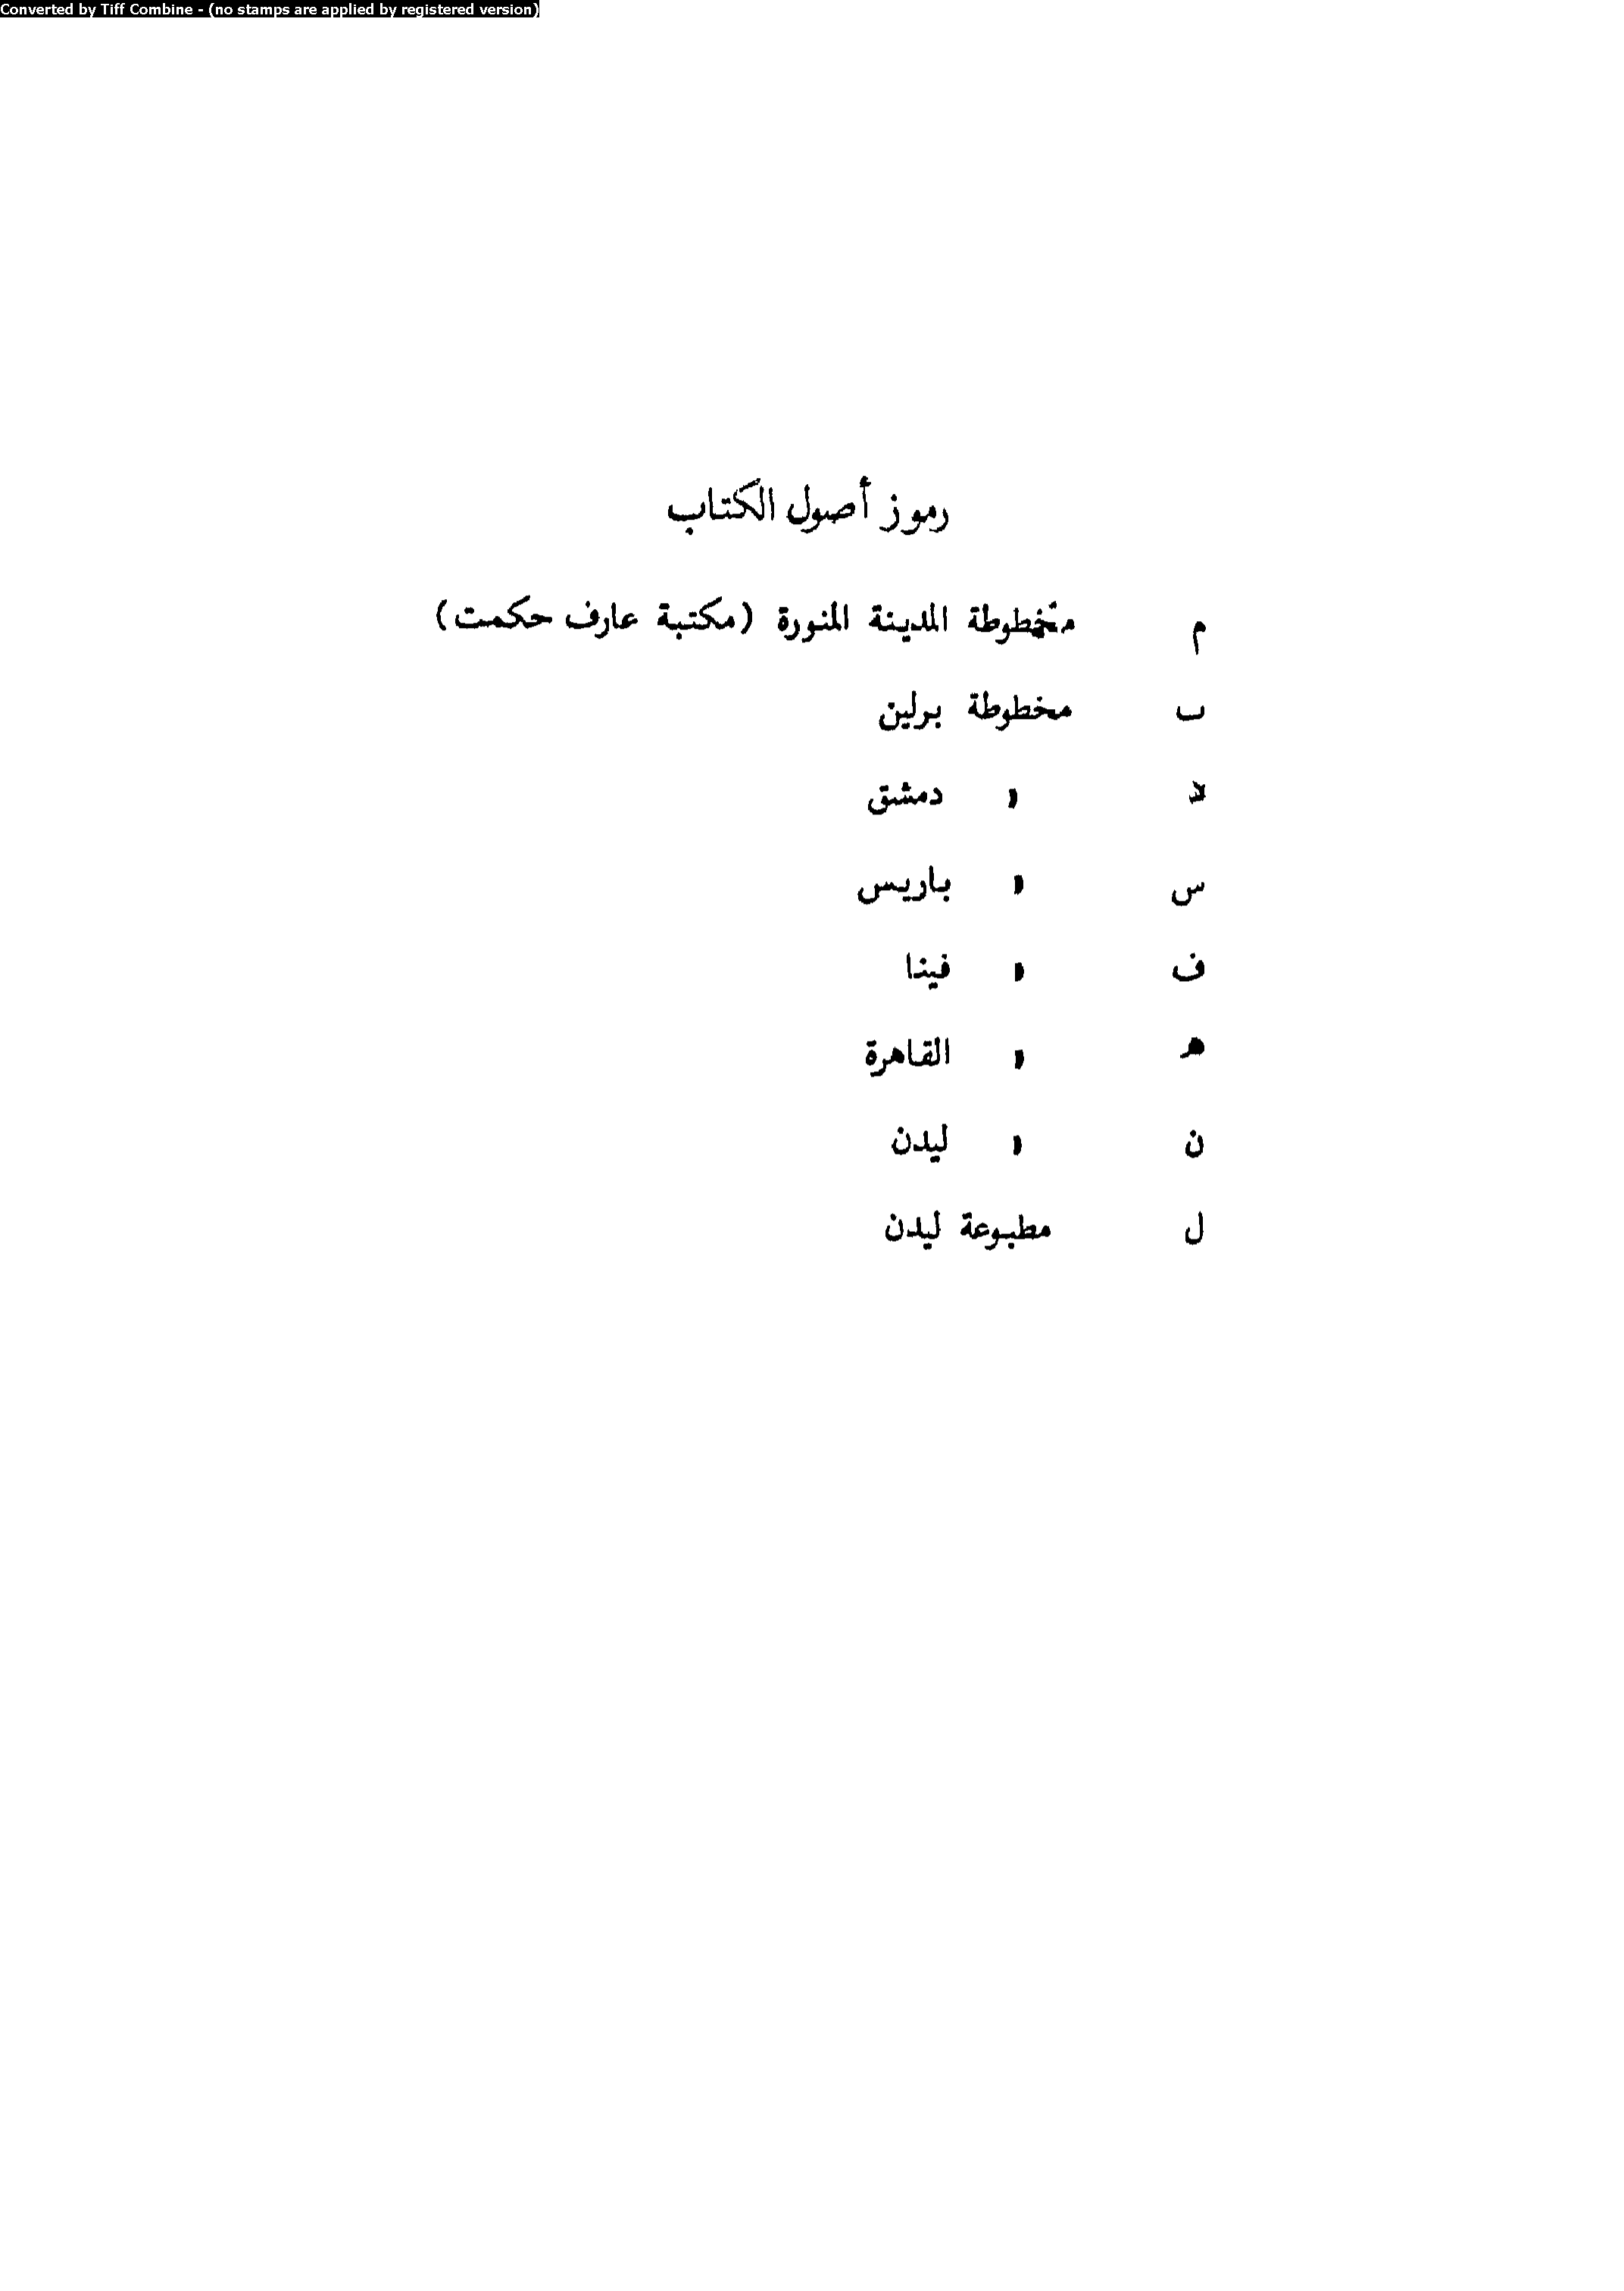 Converted by Tiff Combine - (no stamps are applied by registered version)
رموز أصول الكتاب
م مخطوطة المدينة المنورة (مكتبة عارف حكمت)
ب مخطوطة برلين
د » دمشق
س » باريس
ف » فينا
هـ » القاهرة
ن » ليدن
ل مطبوعة ليدن